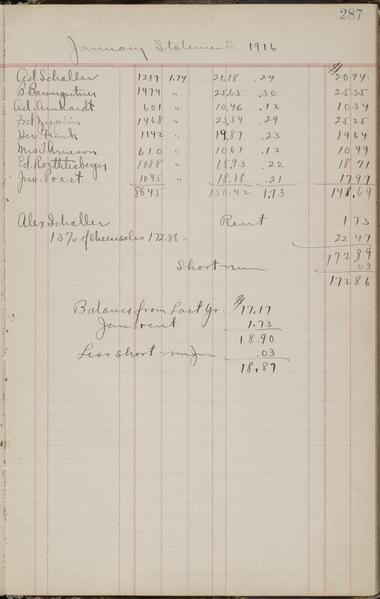 287
January Statements 1916
Ad Schaller 1217 1.74 21.18 .24 $20 94
B. Baumgartner 1474 " 25.65 .30 25 35
Ad. Amhardt 601 " 10.46 .12 10 34
1468 " 25.54 .29 25 25
1142 " 19.87 .23 19 64
Arneson 610 " 10.61 .12 10 49
Ed. Rogthlisberger 1088 " 18.93 .22 18 71
Jno. Poast 1045 " 18.18 .21 17 97
8645 150.42 1.73 148.69
Alex Schaller Rent 1 73
13% of cheese sales 172.86 = 22 47
172.89
Short run .03
172 86
Balance from Last Yr. $17.17
Jan rent 1.73
18.90
Less short run Jan .03
18.87